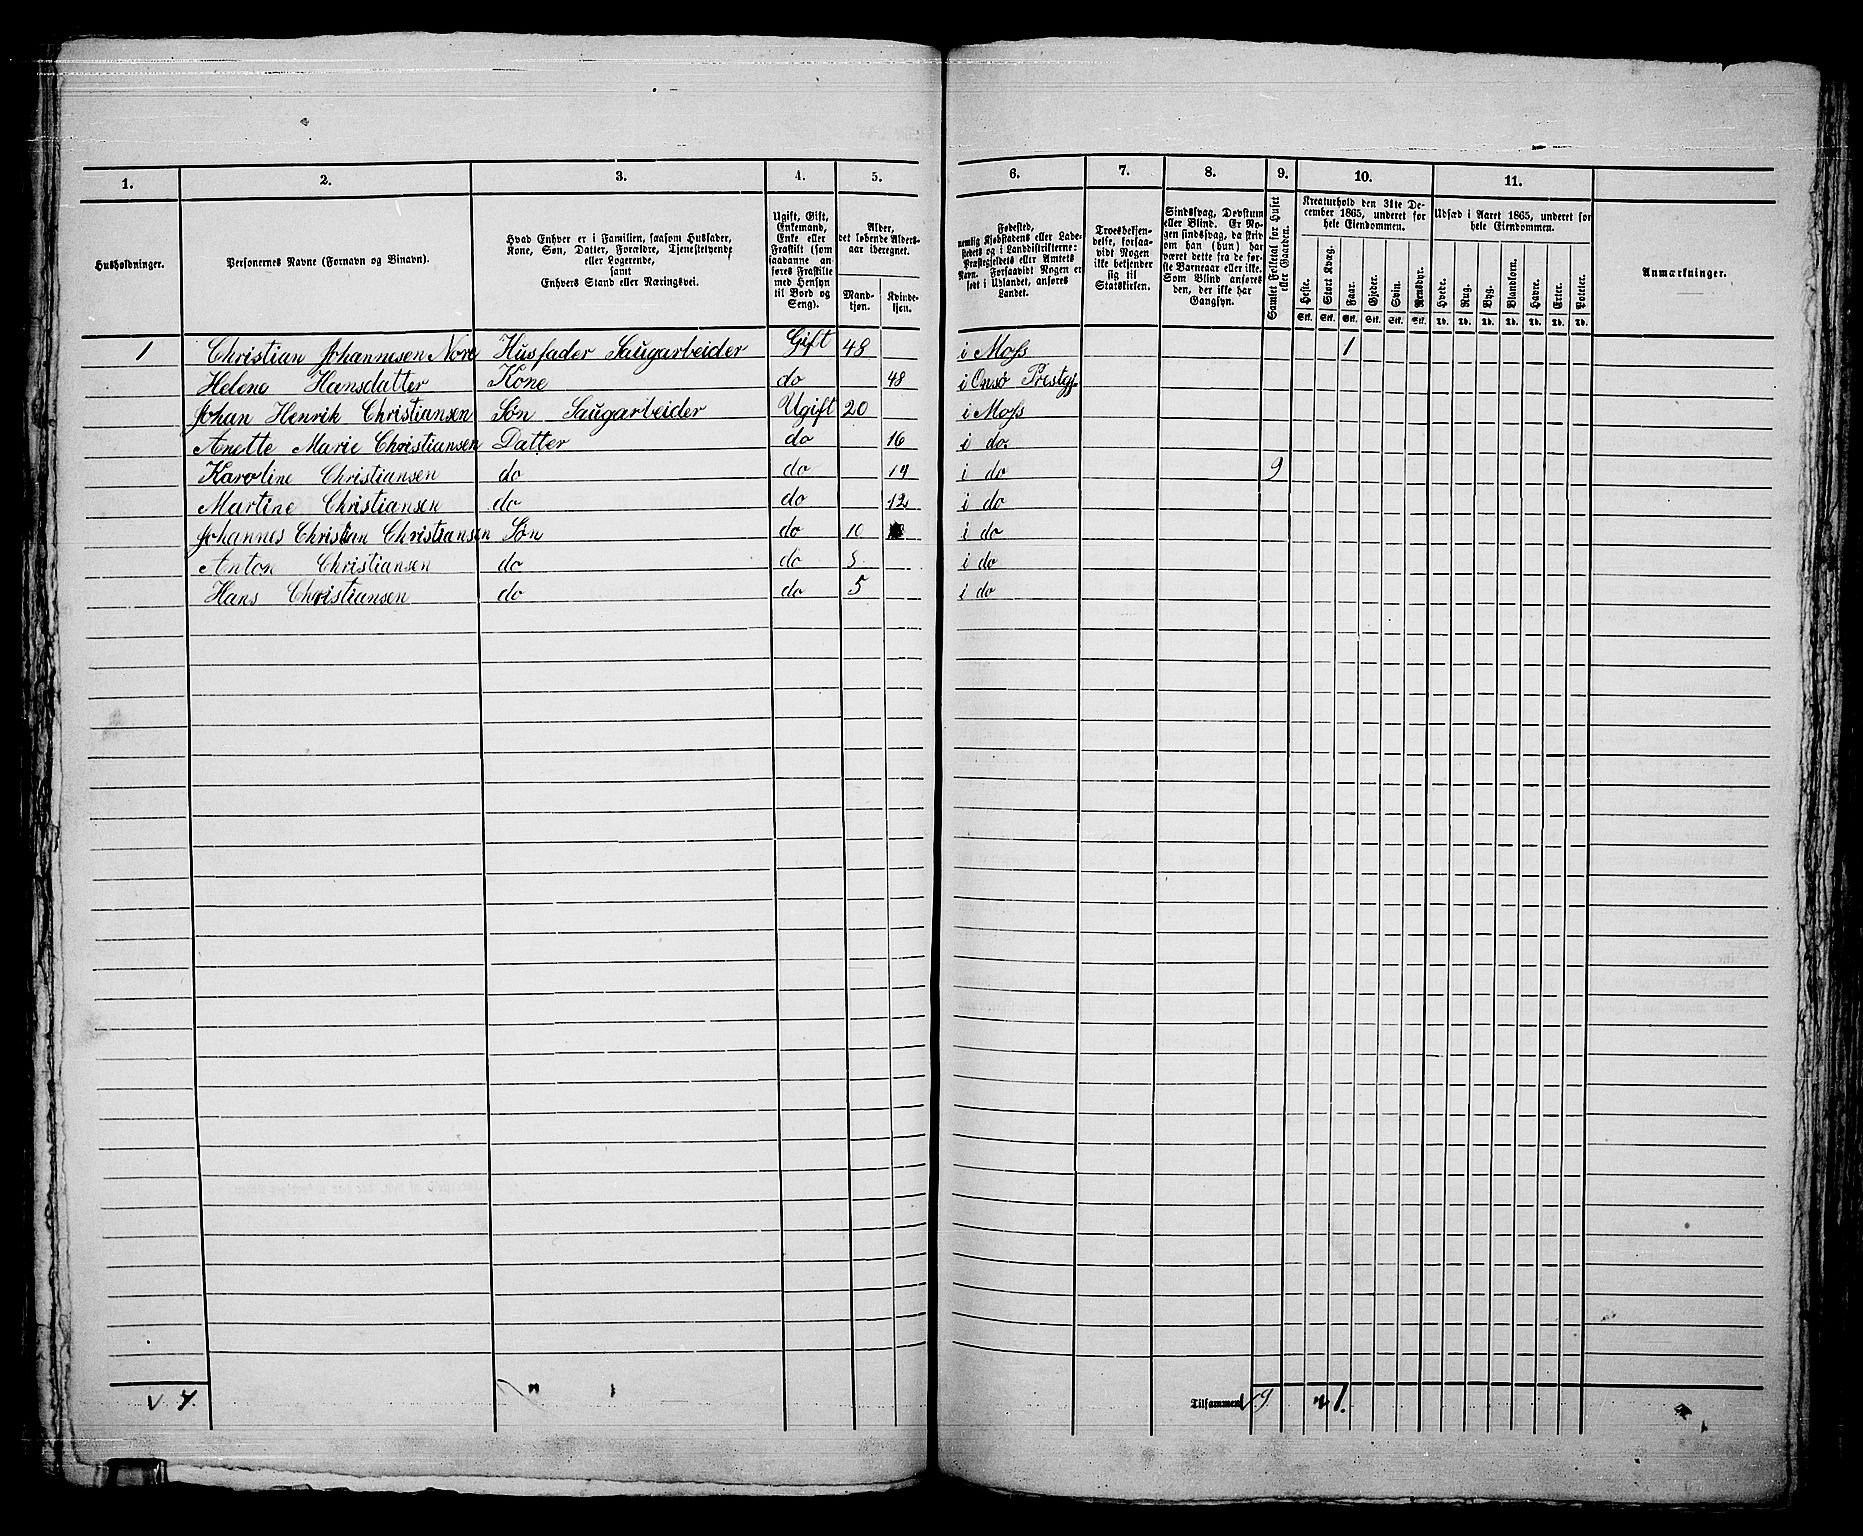 1. 2. 3. 4. 5. 6. 7. 8. 9. 10. 11.
Husholdninger.
Personernes Navne (Fornavn og Binavn).
Hvad Enhver er i Familien, saasom Husfader,
Kone, Søn, Datter, Forældre, Tjenestetyende
eller Logerende,
samt
Enhvers Stand eller Næringsvei.
Ugift, Gift,
Enkemand,
Enke eller
Fraskilt (som
saadanne an-
føres Fraskilte
med Hensyn
til Bord og
Seng).
Alder,
det løbende Alders-
aar iberegnet.
Mand-
kjøn.
Kvinde-
kjøn.
Fødested,
nemlig Kjøbstadens eller Lade-
stedets og i Landdistrikterne:
Præstegjeldets eller Amtets
Navn. Forsaavidt Nogen er
født i Udlandet, anføres
Landet.
Troesbekjen-
delse, forsaa-
vidt Nogen
ikke bekjender
sig til
Statskirken.
Sindssvag, Døvstum
eller Blind. Er No-
gen sindssvag, da skriv
om han (hun) har
været dette fra de før-
ste Barneaar eller ikke.
Som Blind anføres
den, der ikke har
Gangsyn.
Samlet Folketal for Huset
eller Gaarden.
Kreaturhold den 31te De-
cember 1865, underet for
hele Eiendommen.
Heste. Stort Kvæg. Faar. Gjeder. Svin. Rensdyr.
Stk. Stk. Stk. Stk. Stk. Stk.
Udsæd i Aaret 1865, underet for
hele Eiendommen.
Hvede. Rug. Byg. Blandkorn. Havre. Erter. Poteter.
Td. Td. Td. Td. Td. Td. Td.
Anmærkninger.
1 Christian Johannesen Nore Husfader Saugarbeider Gift 48 i Moss 1
Helene Hansdatter Kone do 48 i Onsø Prestgj.
Johan Henrik Christiansen Søn Saugarbeider Ugift 20 i Moss
Anette Marie Christiansen Datter do 16 i do.
Karoline Christiansen do do 14 i do 9
Martine Christiansen do do 12 i do
Johannes Christian Christiansen Søn do 10 i do
Anton Christiansen do do i do
Hans Christiansen do do 5 i do
Tilsammen 9 1.